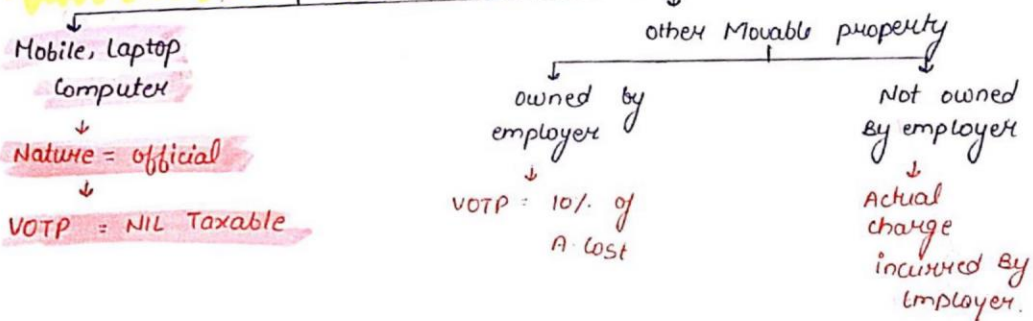 Mobile, Laptop
Computer
↓
Nature = official
↓
VOTP = NIL Taxable
other Movable property
owned by
employer
↓
VOTP = 10% of
A. Cost
Not owned
By employer
↓
Actual
charge
incurred By
Employer.